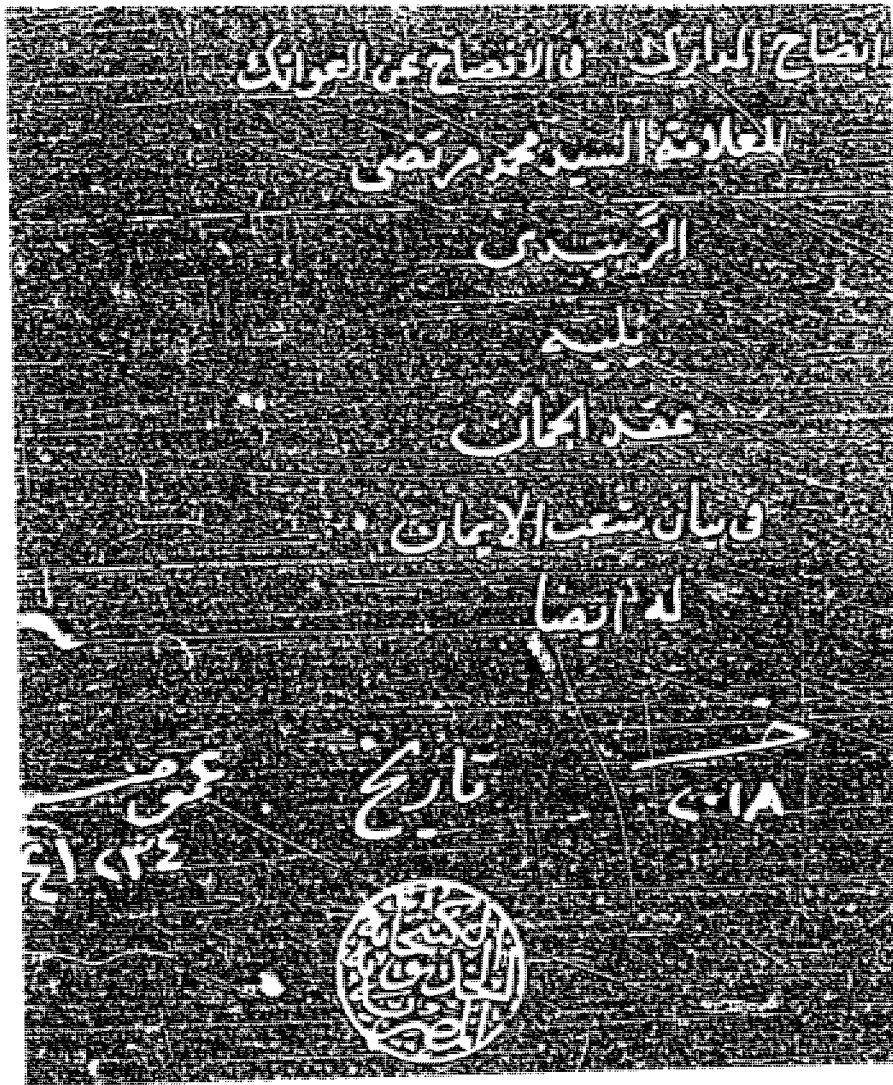 ايضاح المدارك في الافصاح عن العواتك
للعلامة السيد محمد مرتضى
الزَّبيدى
يليه
عقد الجمان
فى بيان شعب الايمان
له ايضا
خـ
٢٠١٨
تاريخ
عمو
٣٤٢٣٤
الكتبخانة
الخديوية
المصرية